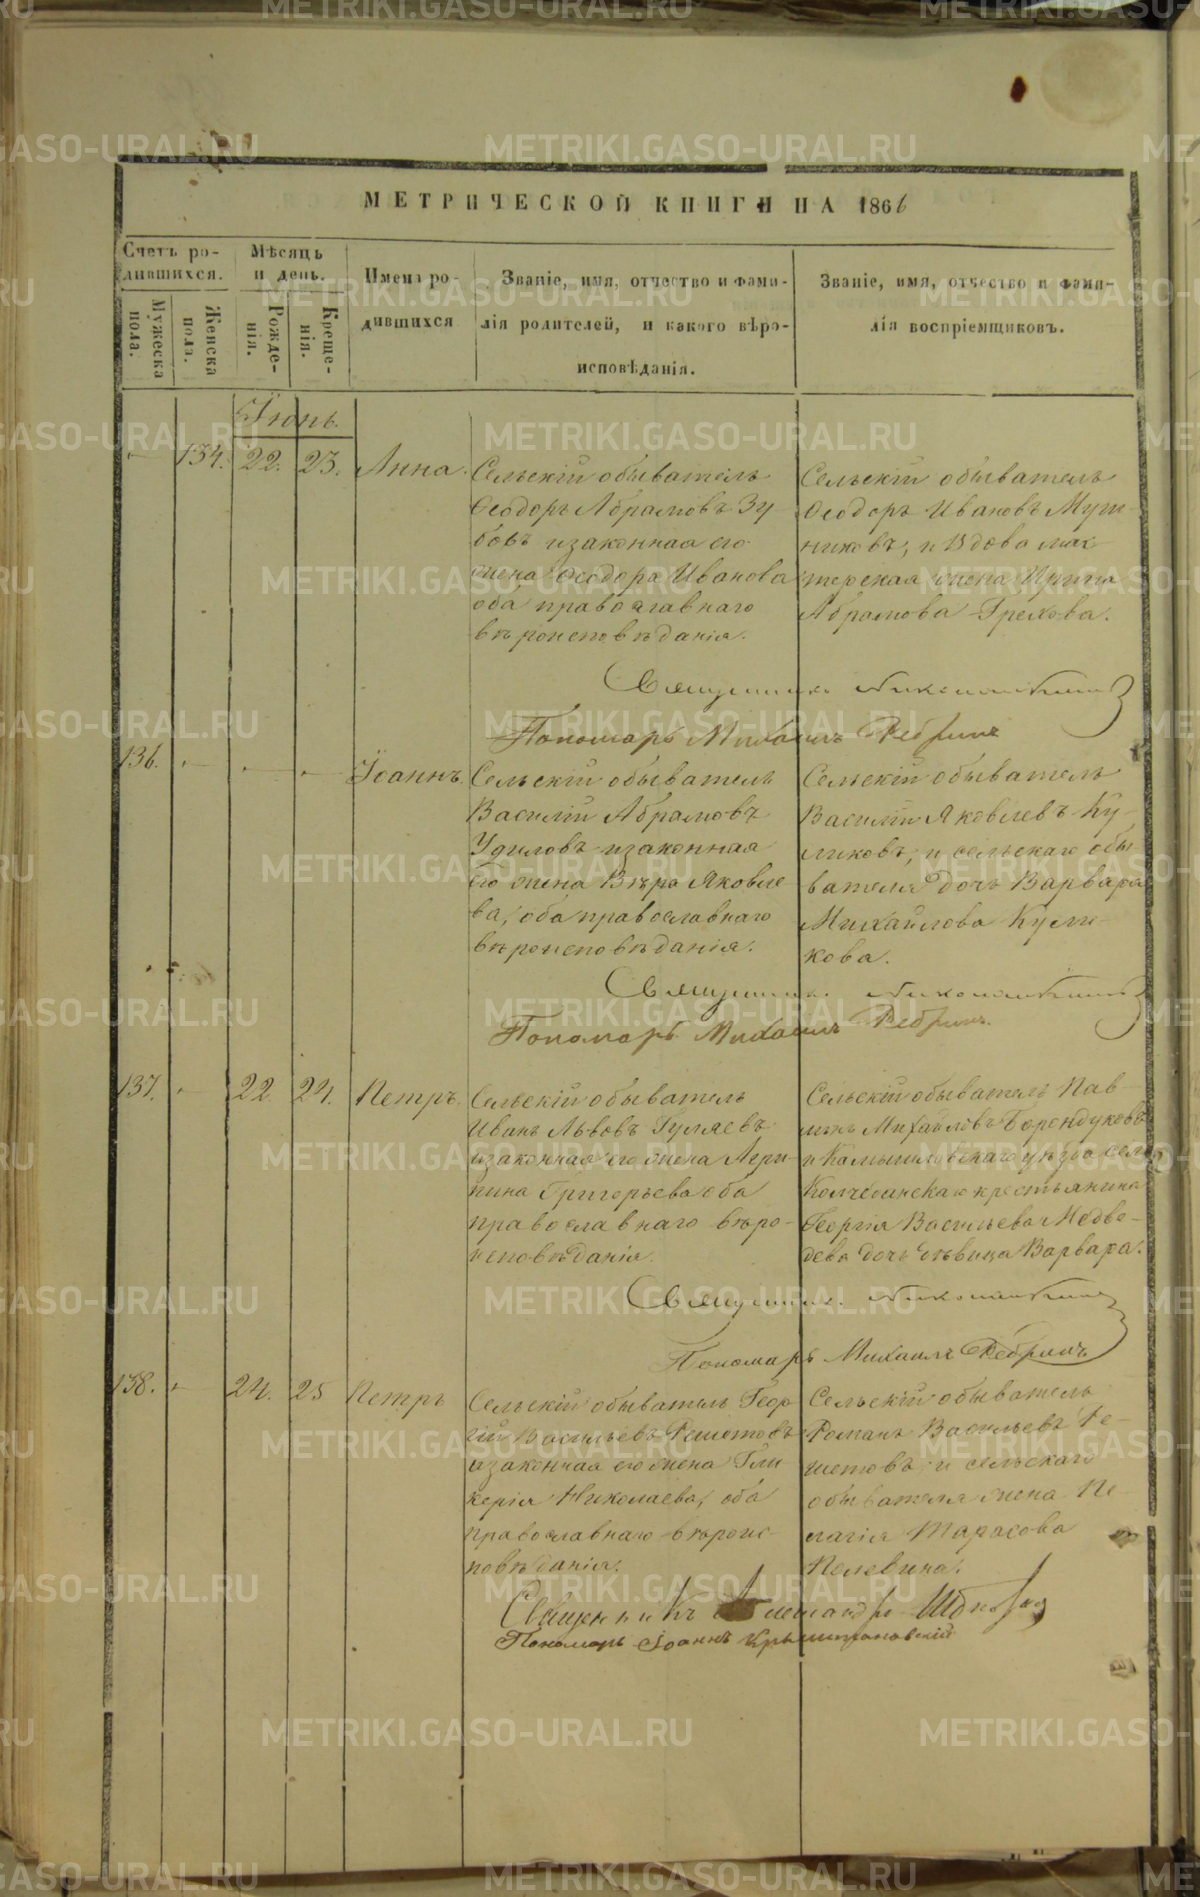 МЕТРИЧЕСКОЙ КНИГИ НА 1866
Счетъ ро-
дившихся.
Мужеска пола.
Женска пола.
Мѣсяць
и день.
Рожде-
нія.
Креще-
нія.
Имена ро-
дившихся
Званіе, имя, отчество и фами-
лія родителей, и какого вѣро-
исповѣданія.
Званіе, имя, отчество и фами-
лія воспріемщиковъ.
Іюнь.
134. 22. 23. Анна.
Сельскій обыватель
Ѳеодоръ Абрамовъ Зу-
бовъ изаконная его
жена Ѳеодора Иванова
оба православнаго
вѣроисповѣданія.
Сельскій обыватель
Ѳеодоръ Ивановъ
никовъ, и Вдова мас-
терская жена Ирина
Абрамова Грехова.
Священникъ
Пономарь Михаилъ Ребринъ
136. Іоаннъ
Сельскій обыватель
Василій Абрамовъ
Удиловъ изаконная
его жена Вѣра Яковле
ва, оба православнаго
вѣроисповѣданія.
Сельскій обыватель
Василій Яковлевъ Ку-
ликовъ, и сельскаго обы-
вателя дочь Варвара
Михайлова Кули-
кова.
Священникъ
Пономарь Михаилъ Ребринъ.
137. 22. 24. Петръ.
Сельскій обыватель
Иванъ Львовъ Гуляевъ
изаконная его жена Агри-
пина Григорьева оба
православнаго вѣро-
исповѣданія.
Сельскій обыватель Пав-
Михайловъ Борендуковъ
и Камышловскаго уѣзда села
Колчеданскаго крестьянина
Георгія Васильева Медве-
дева дочь дѣвица Варвара.
Священникъ
Пономарь Михаилъ Ребринъ
138. 24. 25 Петръ
Сельскій обыватель Геор
гій Васильевъ Решетовъ
изаконная его жена Гли
керія Николаева, оба
православнаго вѣроис-
повѣданія.
Сельскій обыватель
Романъ Васильевъ Ре-
шетовъ, и сельскаго
обывателя жена Пе
лагія Тарасова
Полевина.
Священникъ Александръ
Пономарь Іоаннъ Крыштановскій
METRIKI.GASO-URAL.RU